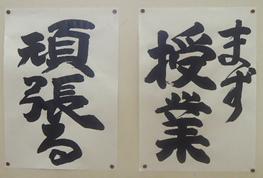 まず
授業
頑張る